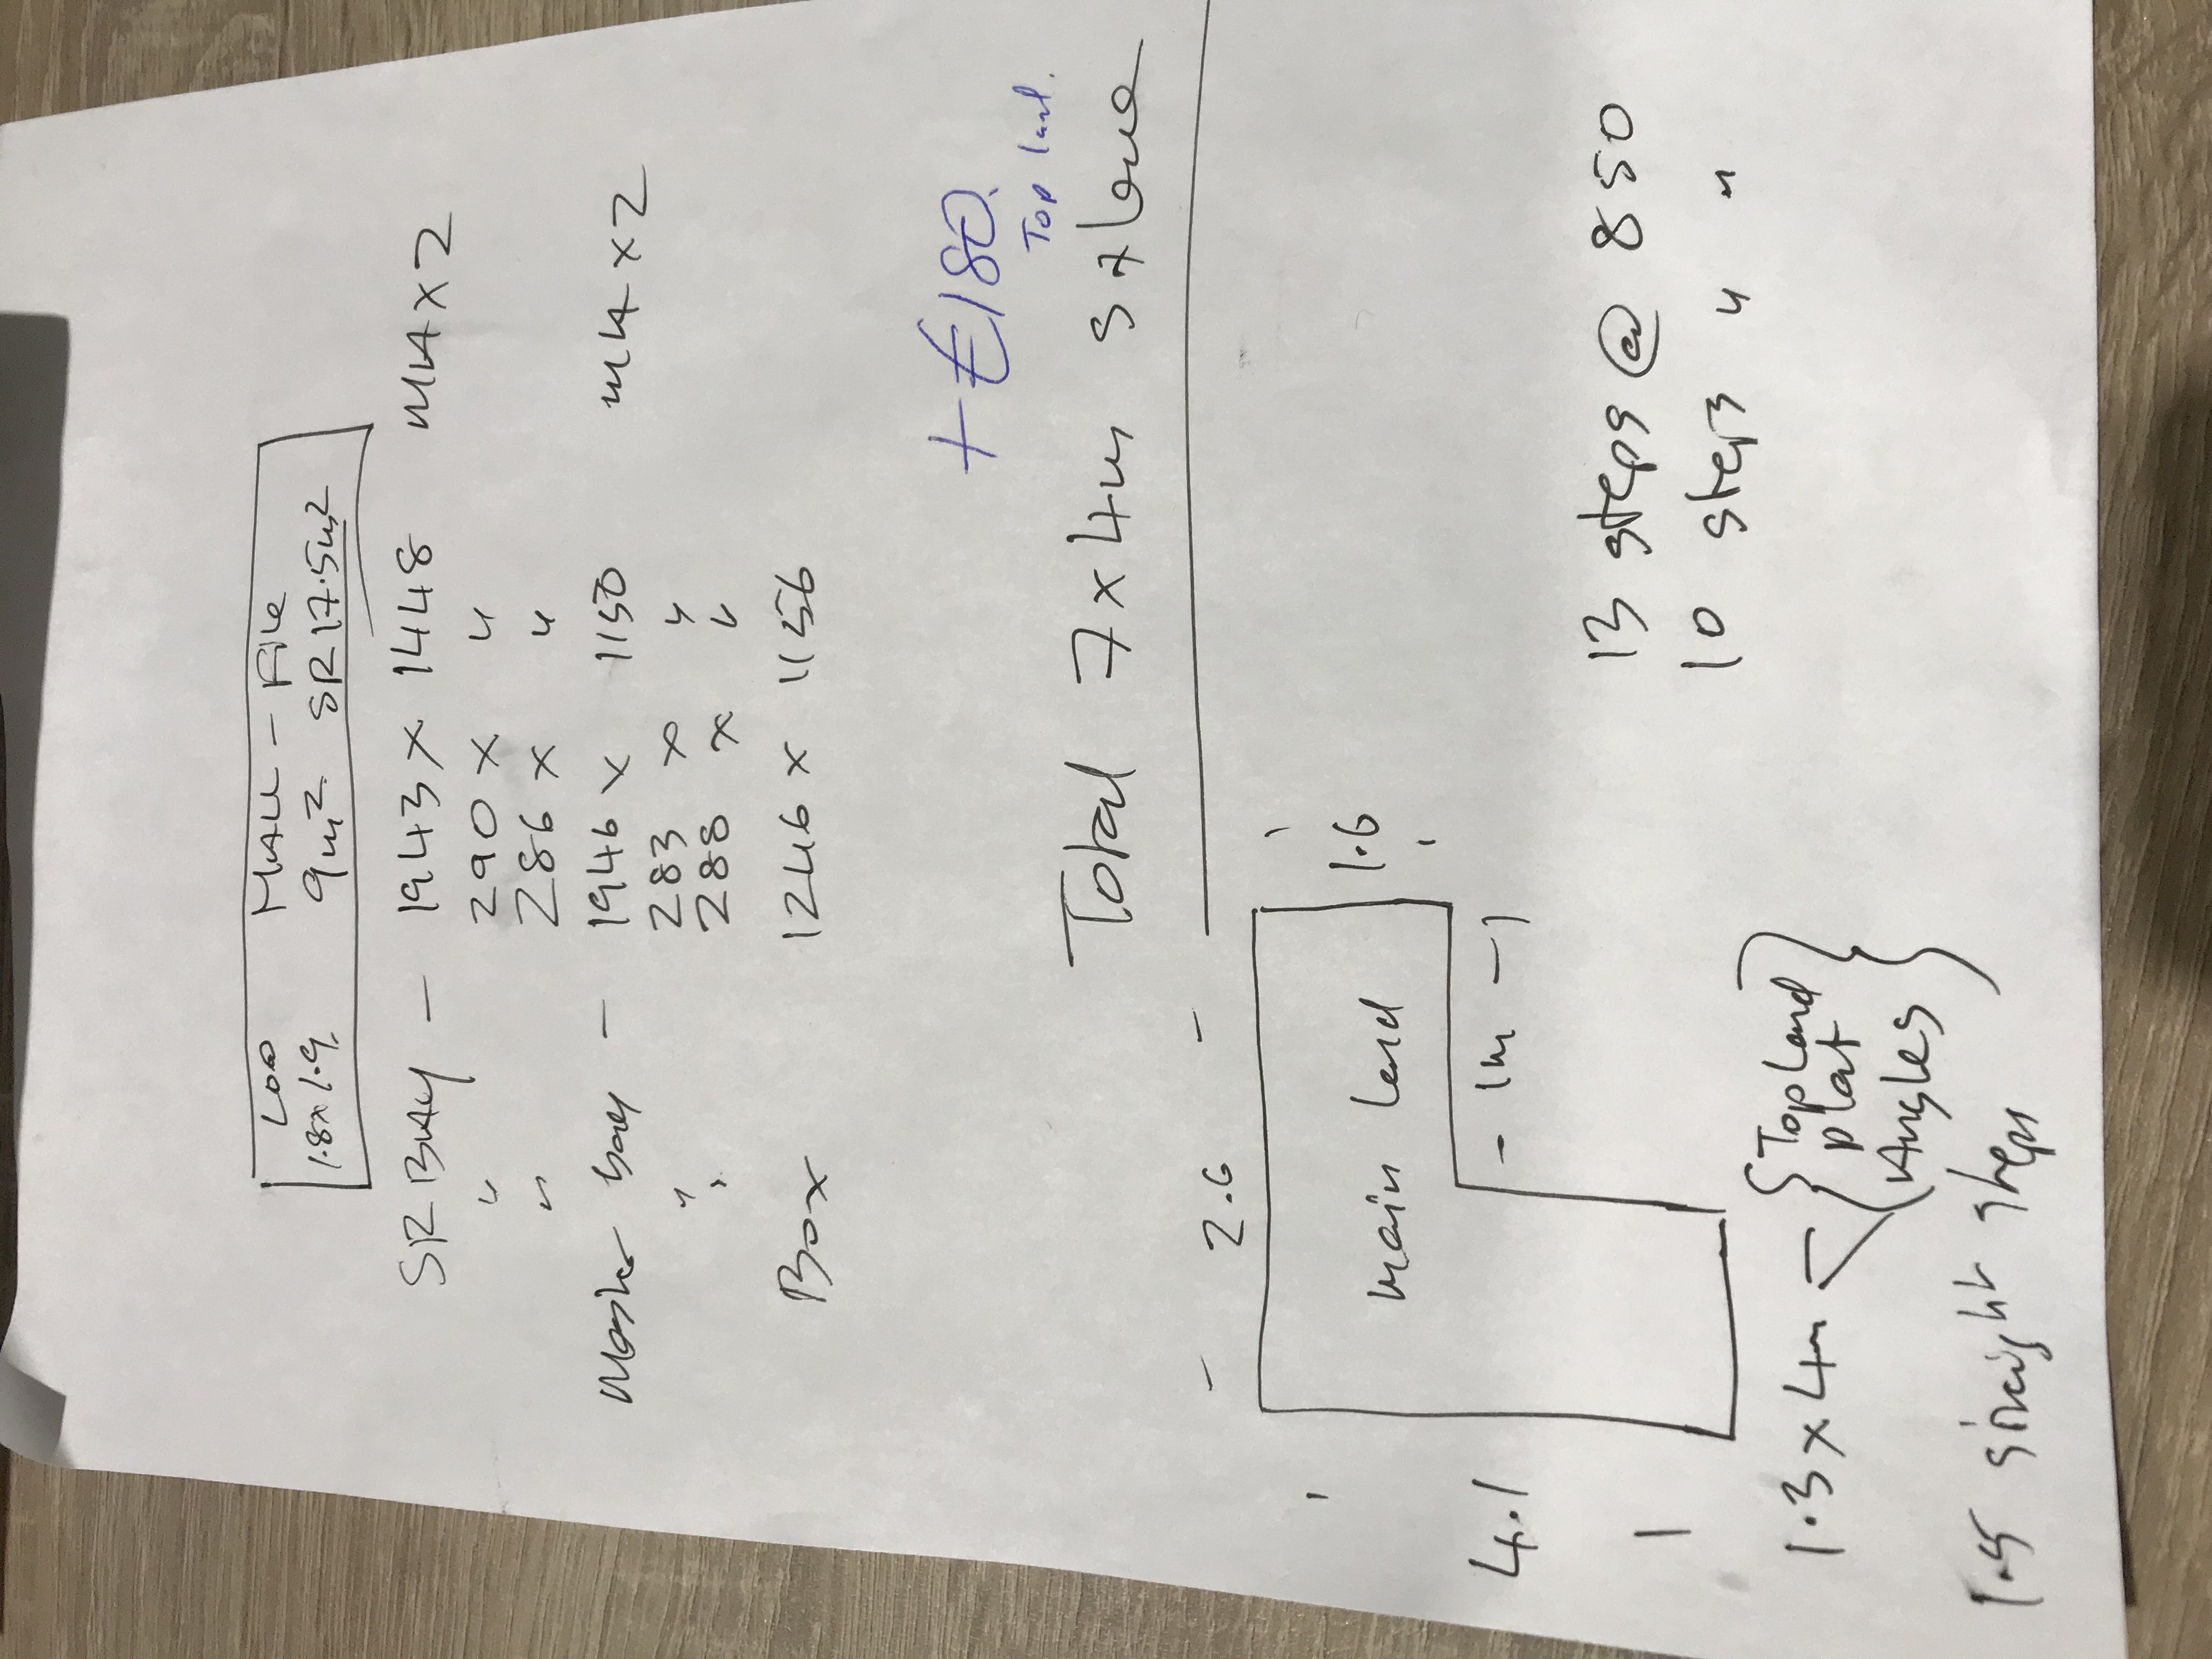 Loo MALL - File
1.8x1.9 9m² SR 17.5m²
SR BAY - 1943 x 1448 MLA x 2
" 290 x "
" 286 x "
Master bay - 1946 x 1150 MLA x 2
" 283 x "
" 288 x "
Box 1246 x 1156
+ €180
Top land.
Total 7x4m
- 2.6 -
main land
1.6
4.1
- 1m -
13 steps @ 850
10 steps " "
1.3 x 4m - { Top Land
plat
Angles }
straight steps